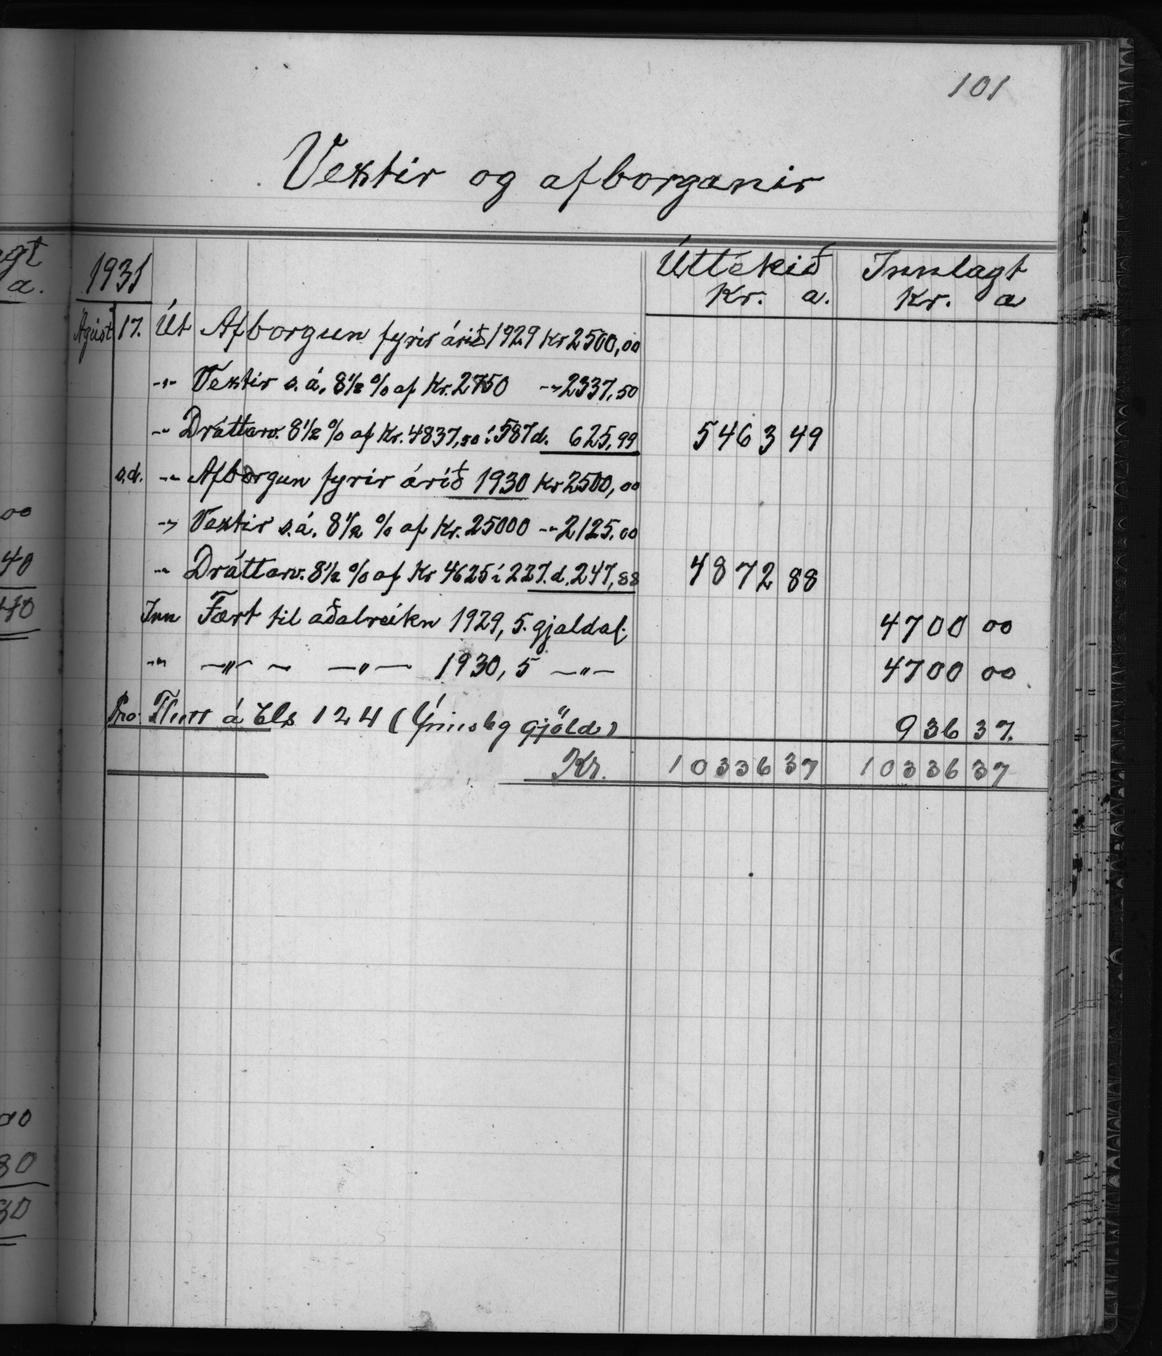 101
Vextir og afborganir
1931
Úttekið Innlagt
Kr. a. Kr. a
Agúst 17. Út Afborgun fyrir árið 1929 Kr 2500,00
-"- Vextir s.á. 8½ % af Kr. 2750 -"- 2337,50
-"- Dráttarv. 8½ % af Kr. 4837,50 í 587 d. 625,99 5463 49
s.d. -"- Afborgun fyrir árið 1930 Kr 2500,00
-"- Vextir s.á. 8½ % af Kr. 25000 -"- 2125,00
-"- Dráttarv. 8½ % af Kr 4625 í 227. d. 247,88 4872 88
Inn Fært til aðalreikn 1929, 5. gjaldaf. 4700 00
-"- -"- - -"- 1930, 5 -"- 4700 00
Flutt á bls 124 (Ýmisleg gjöld) 936 37.
Kr. 10336 37 10336 37
agt
a.
00
40
40
00
80
30